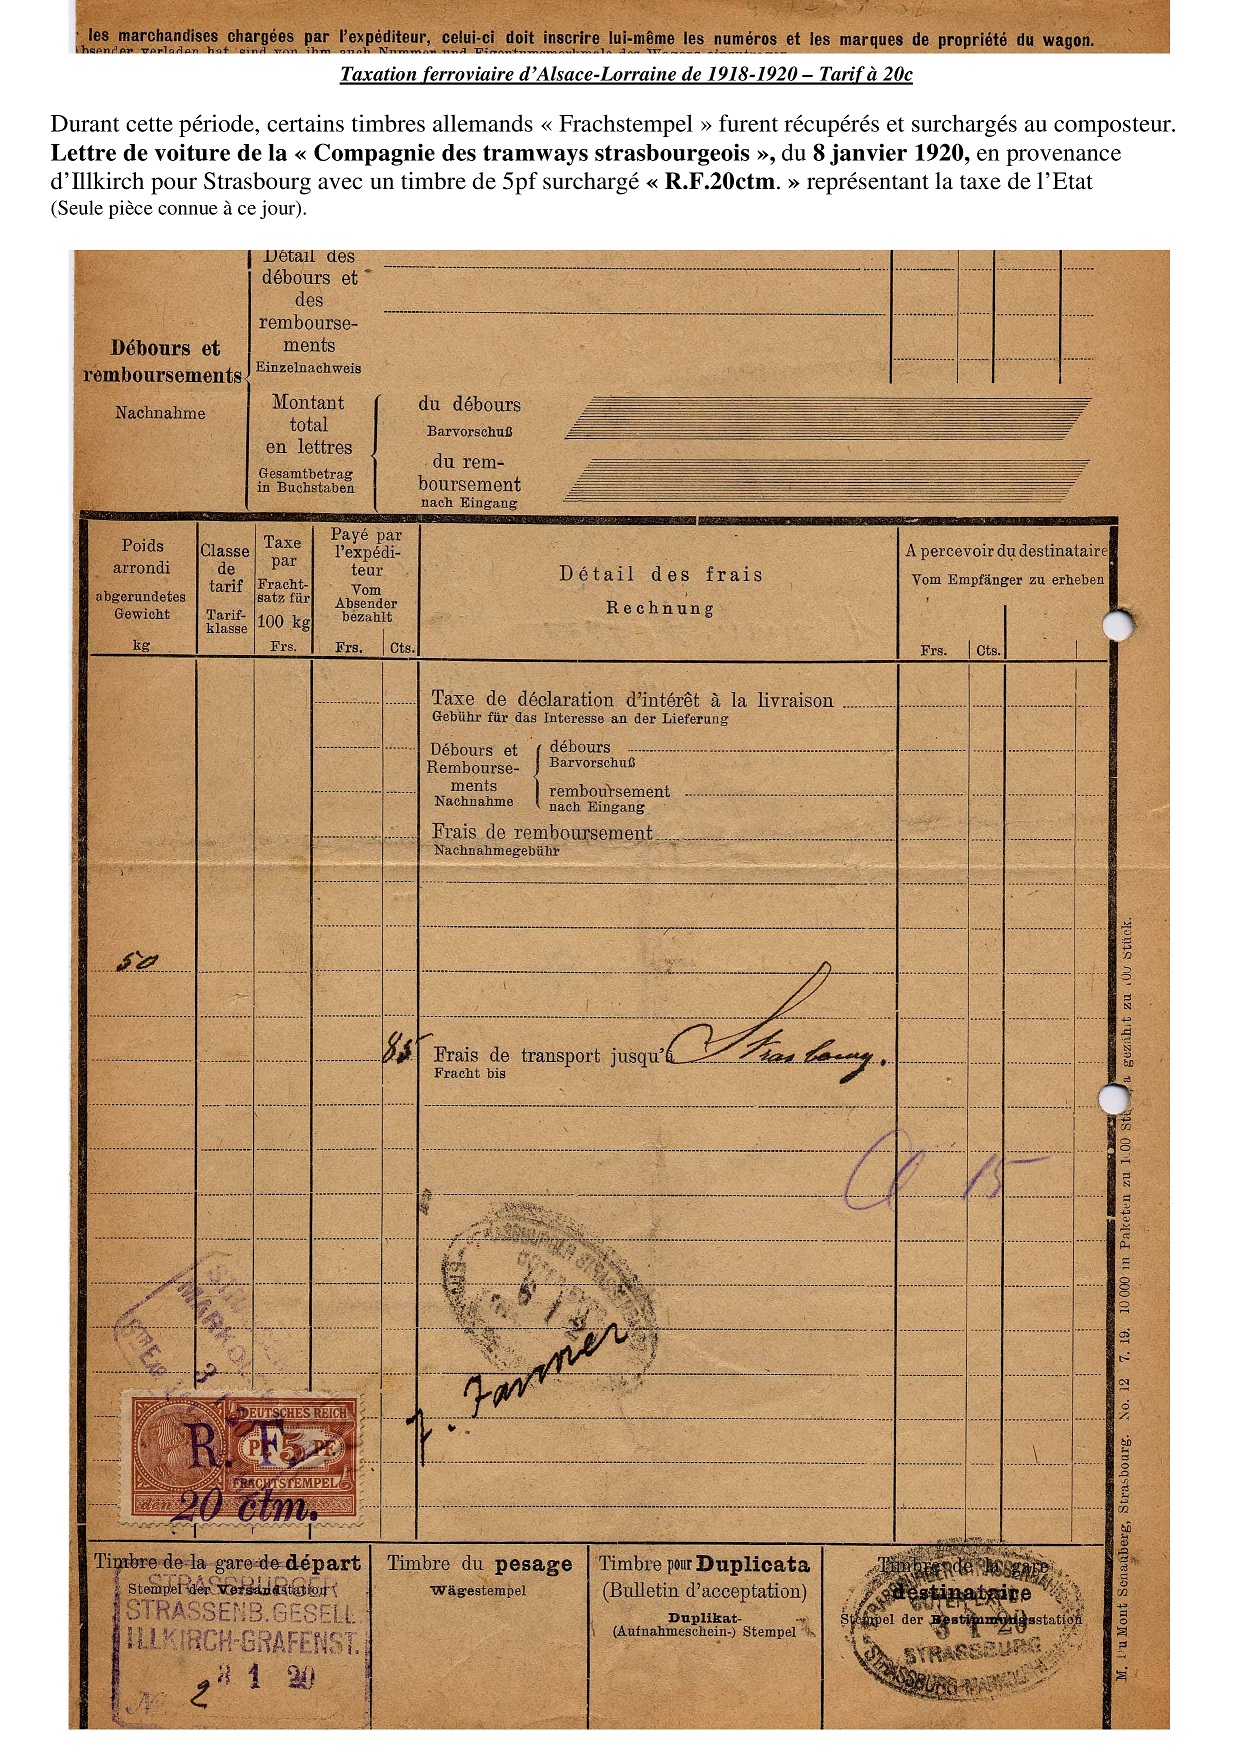 les marchandises chargées par l'expéditeur, celui-ci doit inscrire lui-même les numéros et les marques de propriété du wagon.
Taxation ferroviaire d'Alsace-Lorraine de 1918-1920 – Tarif à 20c
Durant cette période, certains timbres allemands « Frachstempel » furent récupérés et surchargés au composteur.
Lettre de voiture de la « Compagnie des tramways strasbourgeois », du 8 janvier 1920, en provenance
d'Illkirch pour Strasbourg avec un timbre de 5pf surchargé « R.F.20ctm. » représentant la taxe de l'Etat
(Seule pièce connue à ce jour).
Détail des
débours et
des
rembourse-
ments
Einzelnachweis
Débours et
remboursements
Nachnahme
Montant
total
en lettres
Gesamtbetrag
in Buchstaben
du débours
Barvorschuß
du rem-
boursement
nach Eingang
Poids
arrondi
abgerundetes
Gewicht
kg
Classe
de
tarif
Tarif-
klasse
Taxe
par
Fracht-
satz für
100 kg
Frs.
Payé par
l'expédi-
teur
Vom
Absender
bezahlt
Frs. Cts.
Détail des frais
Rechnung
A percevoir du destinataire
Vom Empfänger zu erheben
Frs. Cts.
Taxe de déclaration d'intérêt à la livraison
Gebühr für das Interesse an der Lieferung
Débours et
Rembourse-
ments
Nachnahme
débours
Barvorschuß
remboursement
nach Eingang
Frais de remboursement
Nachnahmegebühr
50
85 Frais de transport jusqu'à Strasbourg.
Fracht bis
15
DEUTSCHES REICH
PF 5 PF.
FRACHTSTEMPEL
den
R. F.
20 ctm.
Timbre de la gare de départ
Stempel der Versandstation
STRASSBURGER
STRASSENB. GESELL.
ILLKIRCH-GRAFENST.
8 1 20
No 2
Timbre du pesage
Wägestempel
Timbre pour Duplicata
(Bulletin d'acceptation)
Duplikat-
(Aufnahmeschein-) Stempel
Timbre de la gare
destinataire
Stempel der Bestimmungsstation
1 20
STRASSBURG
10 000 in Paketen zu 100
No. 12 7. 19.
Strasbourg.